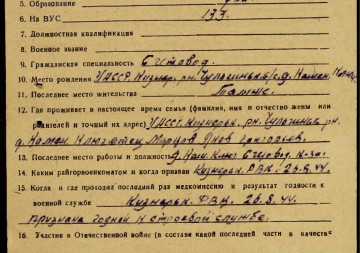 5. Образование
6. На ВУС 133.
7. Должностная квалификация
8. Военное звание
9. Гражданская специальность Счетовод.
10. Место рождения УАССР. Кизнер. рн.
11. Последнее место жительства Там же.
12. Где проживает в настоящее время семья (фамилия, имя и отчество жены или
родителей и точный их адрес) УАССР. Кизнерск. рн.
Яков Григорьев.
13. Последнее место работы и должность Счетовод
14. Каким райгорвоенкоматом и когда призван Кизнерск. РВК. 44.
15. Когда и где проходил последний раз медкомиссию и результат годности к
военной службе Кизнерск. РВК. 44.
признана годной к строевой службе.
16. Участие в Отечественной войне (в составе какой последней части в качестве